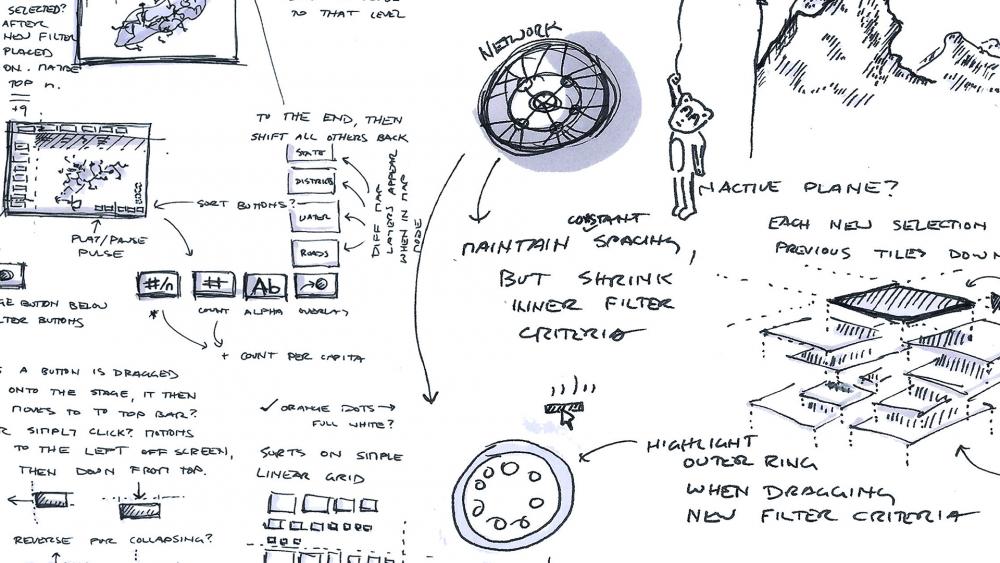 SELECTED?
AFTER
NEW FILTER
PLACED
ON. MAYBE
TOP n.
+9
TO THAT LEVEL
TO THE END, THEN
SHIFT ALL OTHERS BACK
STATE
DISTRICT
WATER
ROADS
DIFF MAP
LAYERS APPEAR
WHEN IN MAP
MODE
SORT BUTTONS?
PLAY/PAUSE
PULSE
#/n
#
Ab
*
COUNT
ALPHA
OVERLAY
BUTTON BELOW
BUTTONS
+ COUNT PER CAPITA
A BUTTON IS DRAGGED
ONTO THE STAGE, IT THEN
MOVES TO TO TOP BAR?
SIMPLY CLICK? MOTIONS
TO THE LEFT OFF SCREEN,
THEN DOWN FROM TOP.
REVERSE FOR COLLAPSING?
✓ ORANGE DOTS →
FULL WHITE?
SORTS ON SIMPLE
LINEAR GRID
NETWORK
CONSTANT
MAINTAIN SPACING,
BUT SHRINK
INNER FILTER
CRITERIA
HIGHLIGHT
OUTER RING
WHEN DRAGGING
NEW FILTER CRITERIA
INACTIVE PLANE?
EACH NEW SELECTION
PREVIOUS TILES DOWN